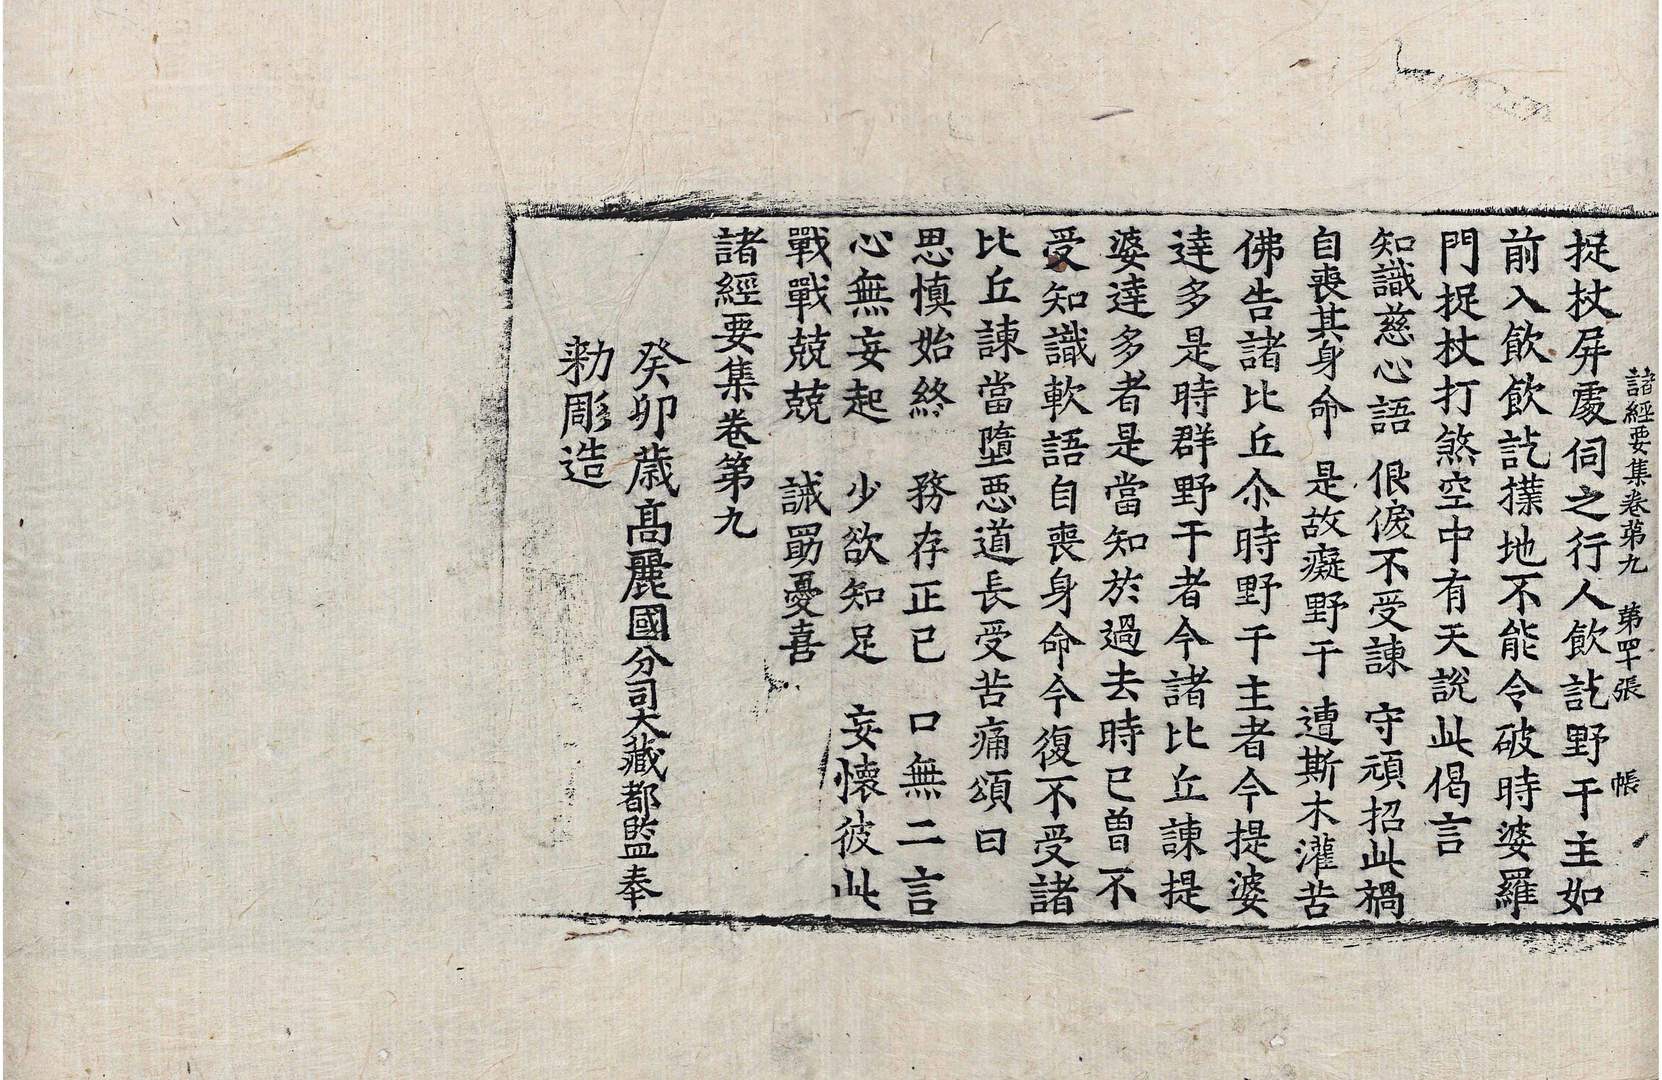 諸經要集卷第九 第四十張 帳
捉杖屏處伺之行人飲訖野干主如
前入飲飲訖撲地不能令破時婆羅
門捉杖打煞空中有天說此偈言
知識慈心語 佷㑦不受諫 守頑招此禍
自喪其身命 是故癡野干 遭斯木灌苦
佛告諸比丘尒時野干主者今提婆
達多是時群野干者今諸比丘諫提
婆達多者是當知於過去時已曾不
受知識軟語自喪身命今復不受諸
比丘諫當墮惡道長受苦痛頌曰
思慎始終 務存正已 口無二言
心無妄起 少欲知足 妄懷彼此
戰戰兢兢 誡勗憂喜
諸經要集卷第九
癸卯歲高麗國分司大藏都監奉
勑彫造